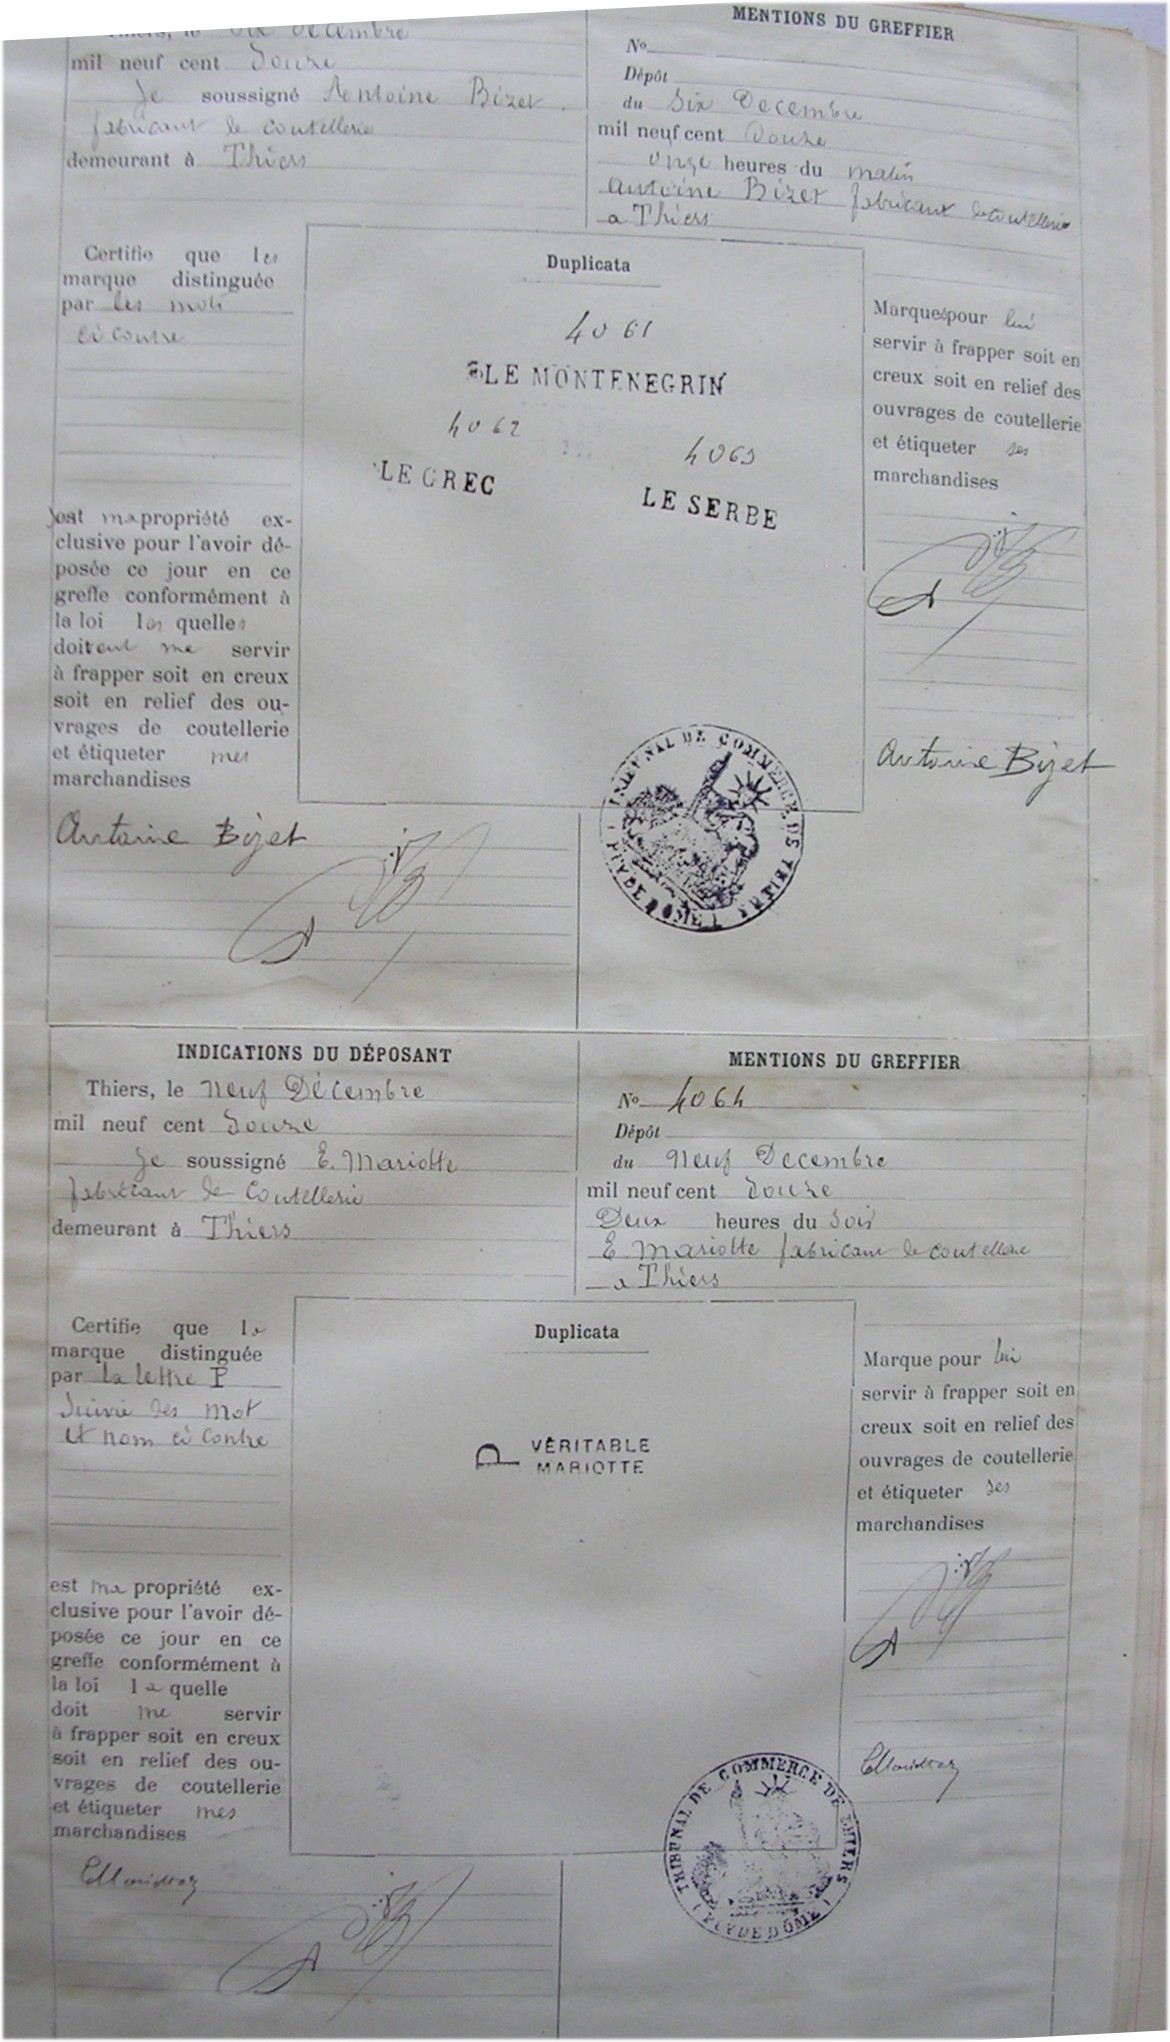 Thiers, le Six Décembre
mil neuf cent Douze
Je soussigné Antoine Bizet
fabricant de coutellerie
demeurant à Thiers
MENTIONS DU GREFFIER
No
Dépôt
du Six Decembre
mil neuf cent Douze
onze heures du matin
Antoine Bizet fabricant de coutellerie
a Thiers
Certifie que les
marque distinguée
par les mots
ci contre
est ma propriété ex-
clusive pour l'avoir dé-
posée ce jour en ce
greffe conformément à
la loi les quelles
doitent me servir
à frapper soit en creux
soit en relief des ou-
vrages de coutellerie
et étiqueter mes
marchandises
Antoine Bizet
Duplicata
4061
LE MONTENEGRIN
4062
LE GREC
4063
LE SERBE
Marques pour lui
servir à frapper soit en
creux soit en relief des
ouvrages de coutellerie
et étiqueter ses
marchandises
Antoine Bizet
TRIBUNAL DE COMMERCE DE THIERS
(PUY DE DOME)
INDICATIONS DU DÉPOSANT
Thiers, le Neuf Décembre
mil neuf cent Douze
Je soussigné E. Mariotte
fabricant de Coutellerie
demeurant à Thiers
MENTIONS DU GREFFIER
No 4064
Dépôt
du Neuf Decembre
mil neuf cent Douze
Deux heures du Soir
E Mariotte fabricant de coutellerie
a Thiers
Certifie que la
marque distinguée
par la lettre P
Suivie des mot
et nom ci contre
est ma propriété ex-
clusive pour l'avoir dé-
posée ce jour en ce
greffe conformément à
la loi la quelle
doit me servir
à frapper soit en creux
soit en relief des ou-
vrages de coutellerie
et étiqueter mes
marchandises
Duplicata
P VÉRITABLE
MARIOTTE
Marque pour lui
servir à frapper soit en
creux soit en relief des
ouvrages de coutellerie
et étiqueter ses
marchandises
TRIBUNAL DE COMMERCE DE THIERS
(PUY DE DÔME)